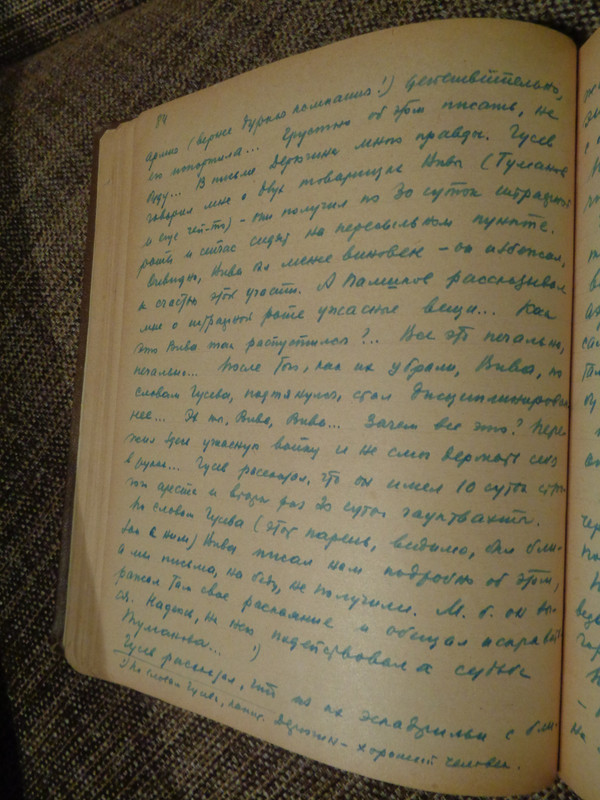 84
армия (вернее дурная компания!) действительно,
его испортила... Грустно об этом писать, не
буду... В письме Дерюгина много правды. Гусев
говорил мне о двух товарищах Вивы (Туманов
и еще чей-то) - они получил по 30 суток штрафной
роты и сейчас сидят на пересыльном пункте.
Видимо, Вива был менее виновен - он избежал,
к счастью этой участи. А Вамиков рассказывал
мне о штрафной роте ужасные вещи... Как
это Вива так распустился?.. Все это печально,
печально... После того, как их убрали, Вива, по
словам Гусева, подтянулся, стал дисциплинирован
нее... Эх ты, Вива, Вива... Зачем все это? Пере
жил всю ужасную войну и не смог держать себя
в руках... Гусев рассказал, что он имел 10 суток стро
гого ареста и второй раз 20 суток гауптвахты.
По словам Гусева (этот парень, видимо, был бли-
зок с ним) Вива писал нам подробно об этом,
а мы письма, на беду, не получили. М. б. он вы-
ражал там свое раскаяние и обещал исправить
ся. Надеюсь, на него подействовала судьба
Туманова... 1)
Гусев рассказал, что из их эскадрильи с бли-
1) По словам Гусева, капит. Дерюгин - хороший человек.